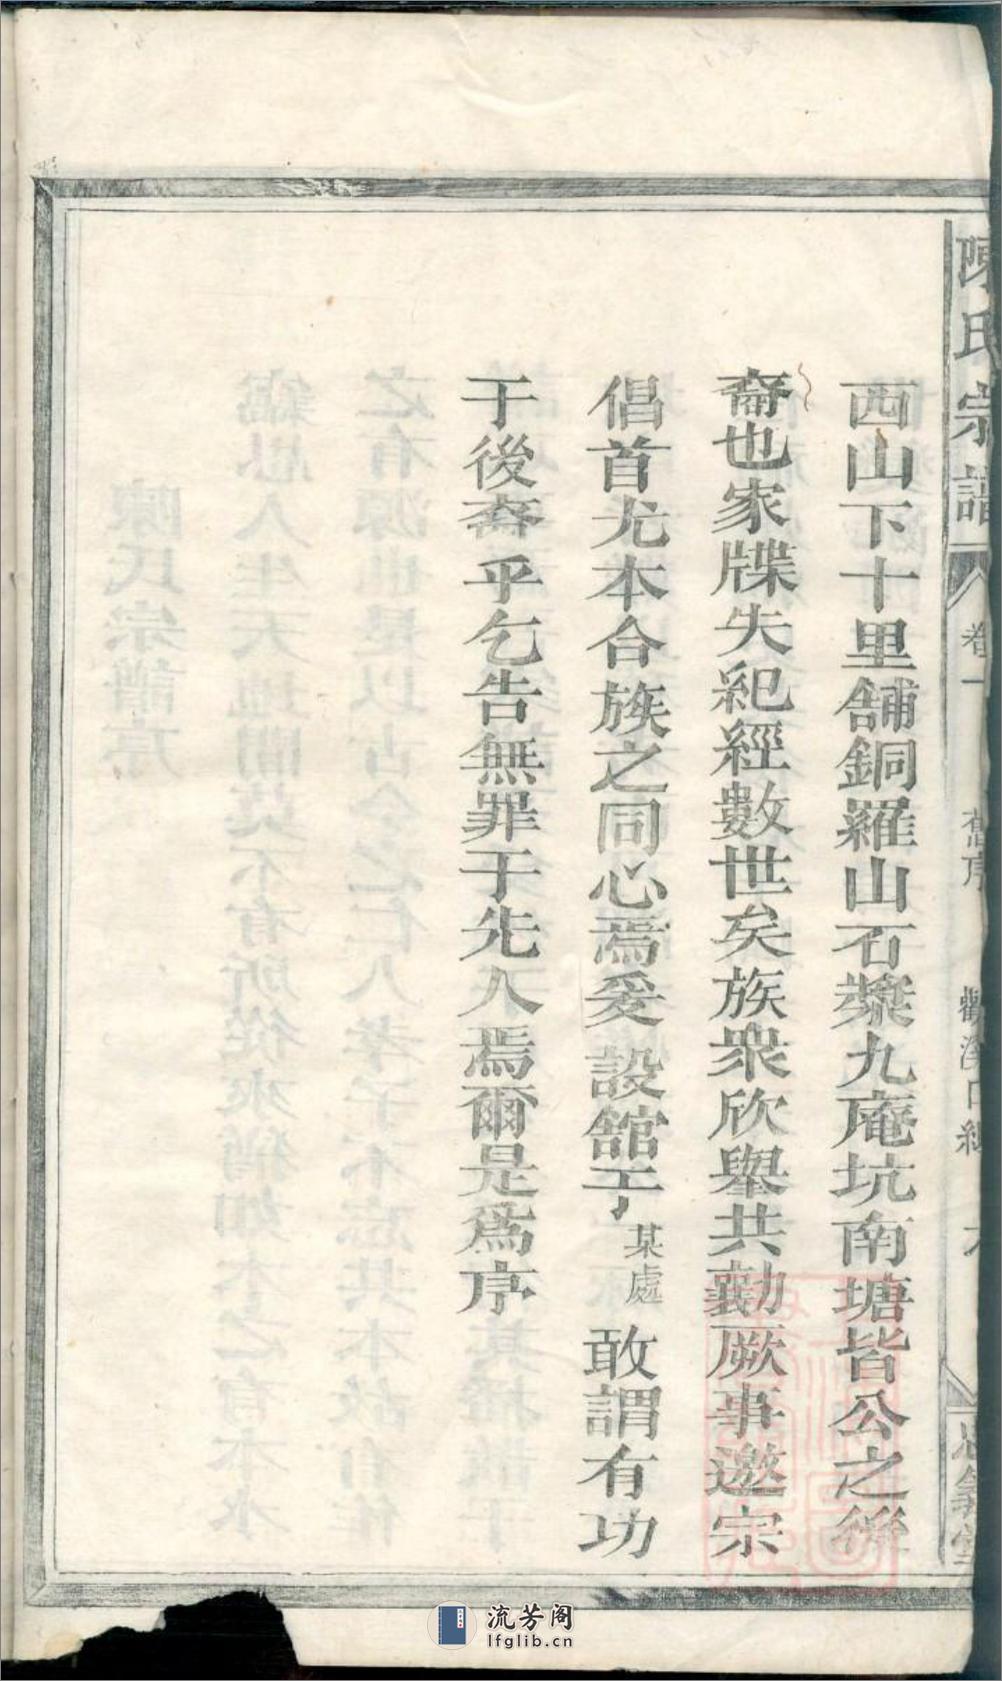 陳氏宗譜
卷一
舊序
六
西山下十里舖銅羅山石漿九庵坑南塘皆公之後
裔也家牒失紀經數世矣族衆欣舉共勷厥事邀宗
倡首尤本合族之同心焉爰設館于某處敢謂有功
于後裔乎乞告無罪于先人焉爾是爲序
流芳阁
lfglib.cn